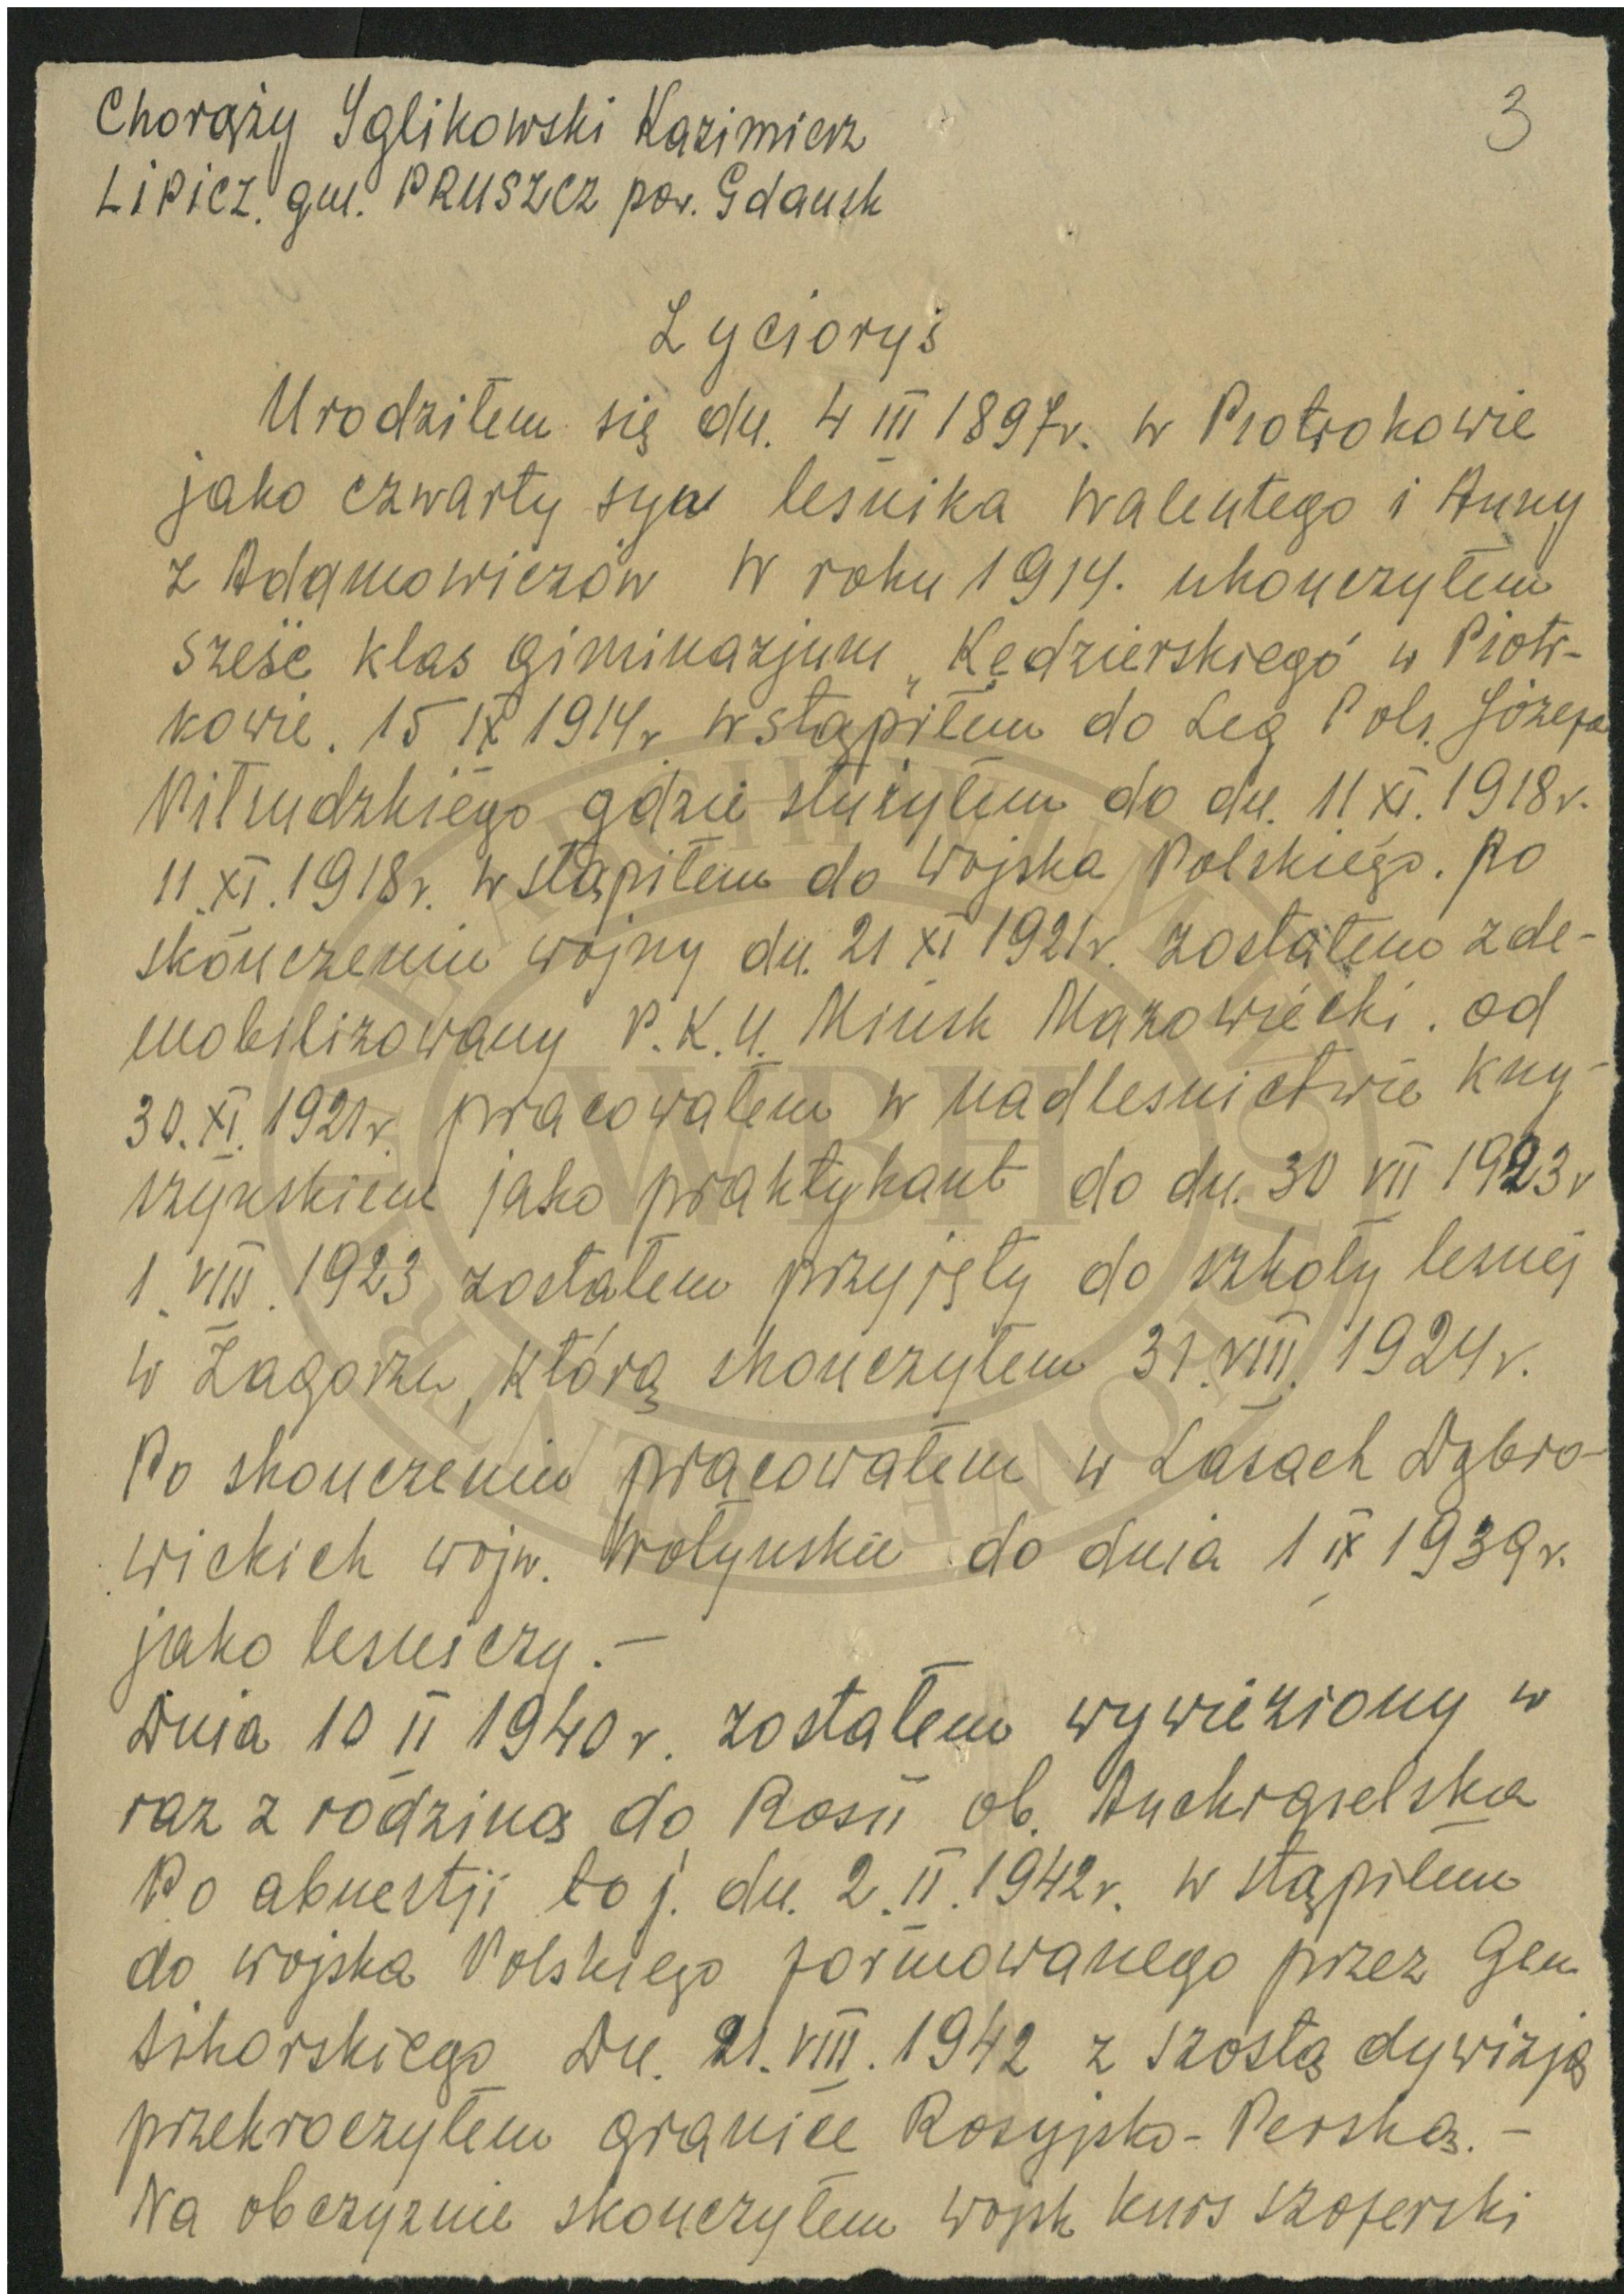 3
Chorąży Iglikowski Kazimierz
LIPICZ. gm. PRUSZCZ pow. Gdańsk
Życiorys
Urodziłem się dn. 4 III 1897r. w Piotrokowie
jako czwarty syn leśnika Walentego i Anny
z Adamowiczów W roku 1914. ukończyłem
sześć klas giminazjum „Kędzierskiego" w Piotr-
kowie. 15 IX 1914r wstąpiłem do Leg Pols. Józefa
Piłsudzkiego gdzie służyłem do dn. 11 XI. 1918r.
11.XI.1918r. wstąpiłem do Wojska Polskiego. po
skończeniu wojny dn. 21 XI 1921r. zostałem zde-
mobilizowany P.K.U. Mińsk Mazowiecki. od
30.XI.1921r. pracowałem w nadleśnictwie Kny-
szyńskiem jako praktykant do dn. 30 VII 1923r
1.VIII.1923 zostałem przyjęty do szkoły leśnej
w Zagórzu, którą skończyłem 31.VIII.1924r.
Po skończeniu pracowałem w Lasach Dąbro-
wickich wojw. Wołyńskie do dnia 1 IX 1939r.
jako leśniczy.-
Dnia 10 II 1940r. zostałem wywieziony w
raz z rodziną do Rosii ob. Auchrąselska
Po abnestji to j. dn. 2.II.1942r. wstąpiłem
do wojska Polskiego formowanego przez Gen
Sikorskiego Dn. 21.VIII.1942 z szostą dywizją
przekroczyłem granice Rosyjsko-Perską.-
Na obczyznie skończyłem wojsk kurs szoferski
ARCHIWUM
WBH